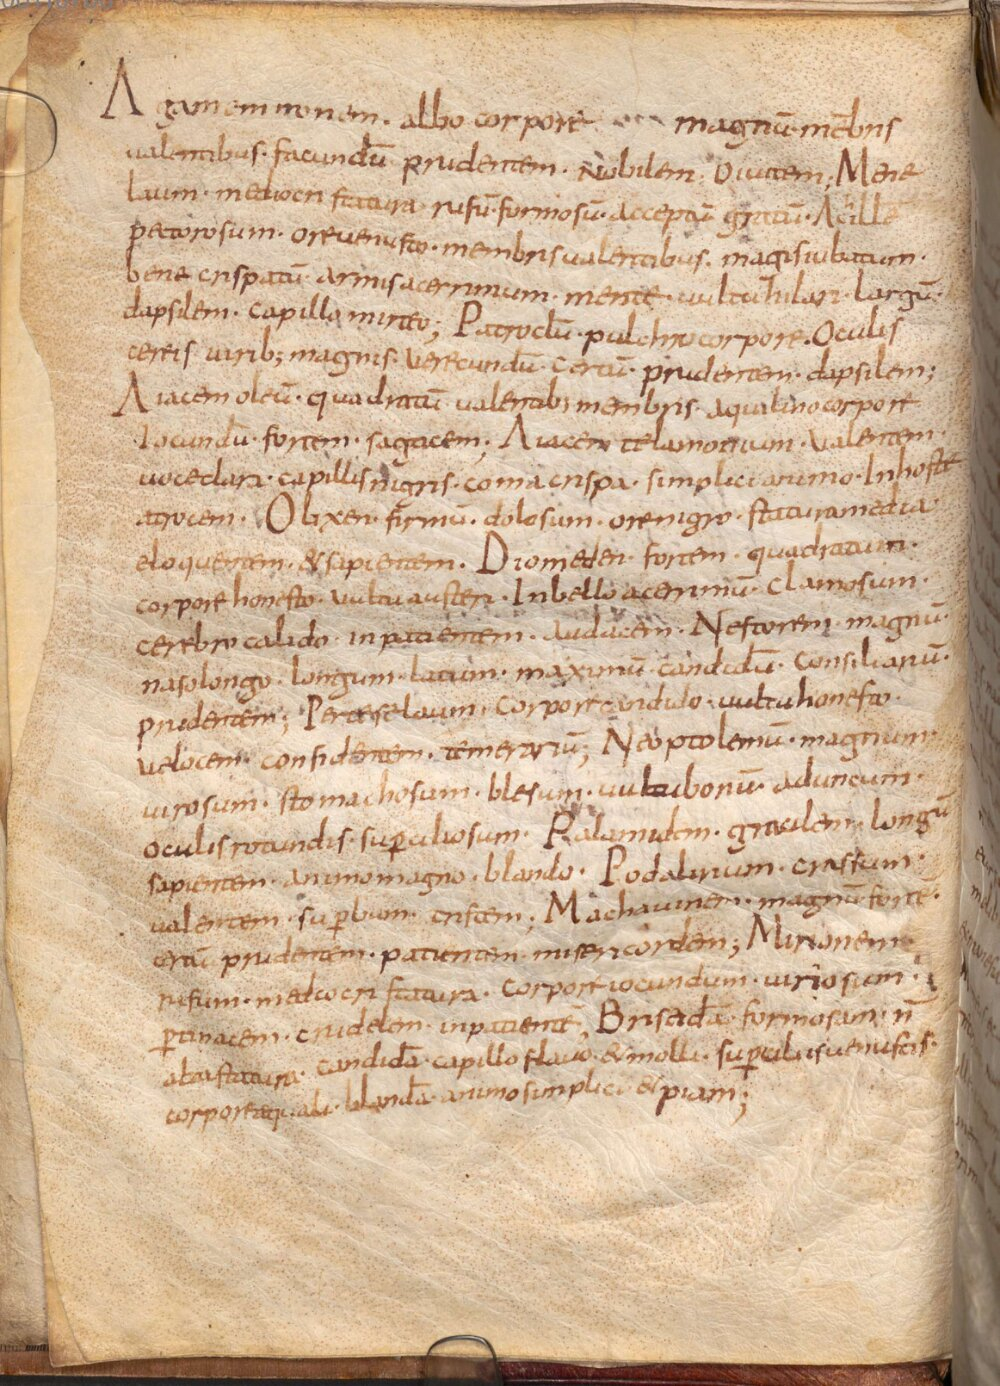 Agamemnonem. albo corpore magnū. mēbris
ualentibus. facundū prudentem. Nobilem. Diuitem; Mene
laum. mediocri statura rufū. formosū. acceptū gratū. Acillē
pectorosum. oreuenusto. membris ualentibus. magis iubatum.
bene crispatū. armis acerrimum. mente. uultu hilari. largū.
dapsilem. capillo mirteo; Patroclū. pulchro corpore. Oculis
cereis uirib; magnis. Verecundū. Certū. prudentem. dapsilem;
Aiacem oleū. quadratū. ualentib; membris. aquilino corpore
Iocundū. fortem. sagacem; Aiacem telamonium. Valentem.
uoce clara. capillis nigris. coma crispa. simplici animo. In hoste
atrocem. Olixen. firmū. dolosum. ore nigro. statura media.
eloquentem. & sapientem. Diomeden. fortem. quadratum.
corpore honesto. uultu austeri. In bello acerrimū. Clamosum.
cerebro calido. inpatientem. audacem. Nestorem. magnū.
naso longo. longum. latum. maximū. candidū. Consiliariū.
prudentem; Porteselaum. Corpore candido. uultu honesto.
uelocem. confidentem. temerariū; Neoptolemū. magnum.
uirosum. stomachosum. blesum. uultu bonū. aduncum.
oculis rotundis. sup̄ciliosum. Palamidem. gracilem. longū
sapientem. animo magno. blando. Podalirium. crassum.
ualentem. sup̄bum. tristem; Machaumem. magnū fortē.
certū prudentem. patientem misericordem; Mirionem
rufum. mediocri statura. Corpore iocundum. uiriosum.
p̄tinacem. crudelem. inpatientē; Briseidā. formosam. n̄
alta statura. candidā. capillo flauo. & molli. sup̄ciliis uenustis.
corpore aequali. blandā. animo simplici & piam;